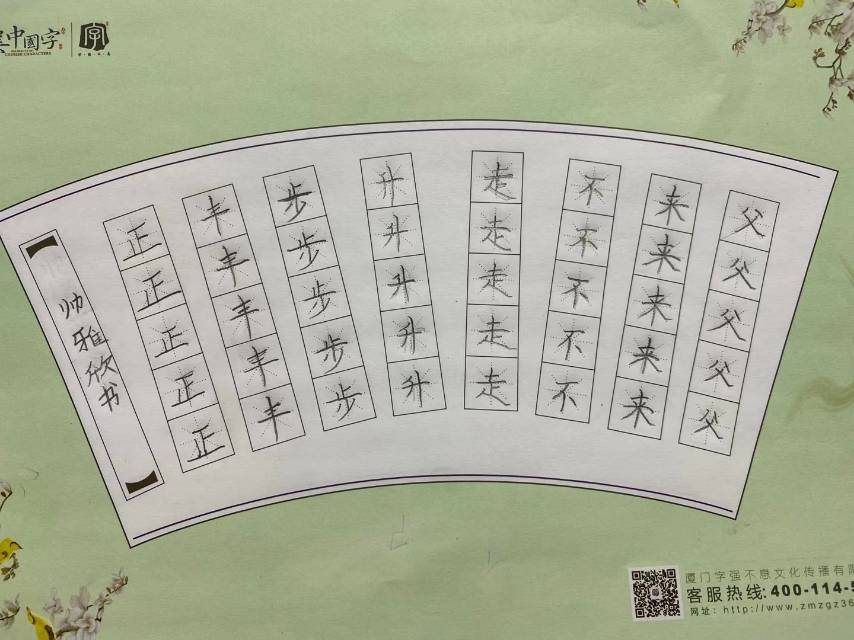 中國字
CHINESE CHARACTERS
字
父父父父父
来来来来来
不不不不不
走走走走走
升升升升升
步步步步步
丰丰丰丰丰
正正正正正
帅雅欣书
厦门字强不息文化传播有限
客服热线:400-114-5
网址:http://www.zmzgz36